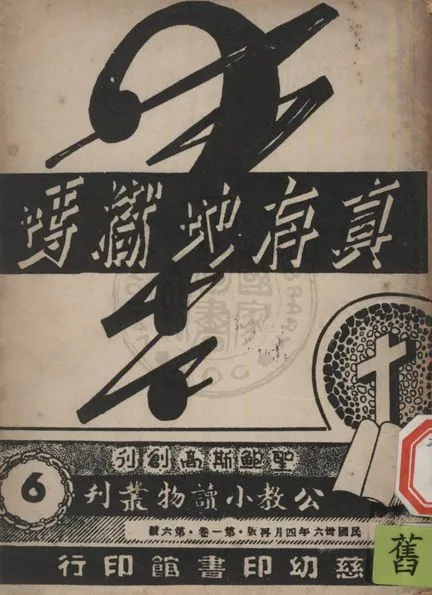 真有地獄嗎
聖鮑斯高創刊
公教小讀物叢刊
6
民國卅六年四月再版・第一卷・第六號
慈幼印書館印行
舊